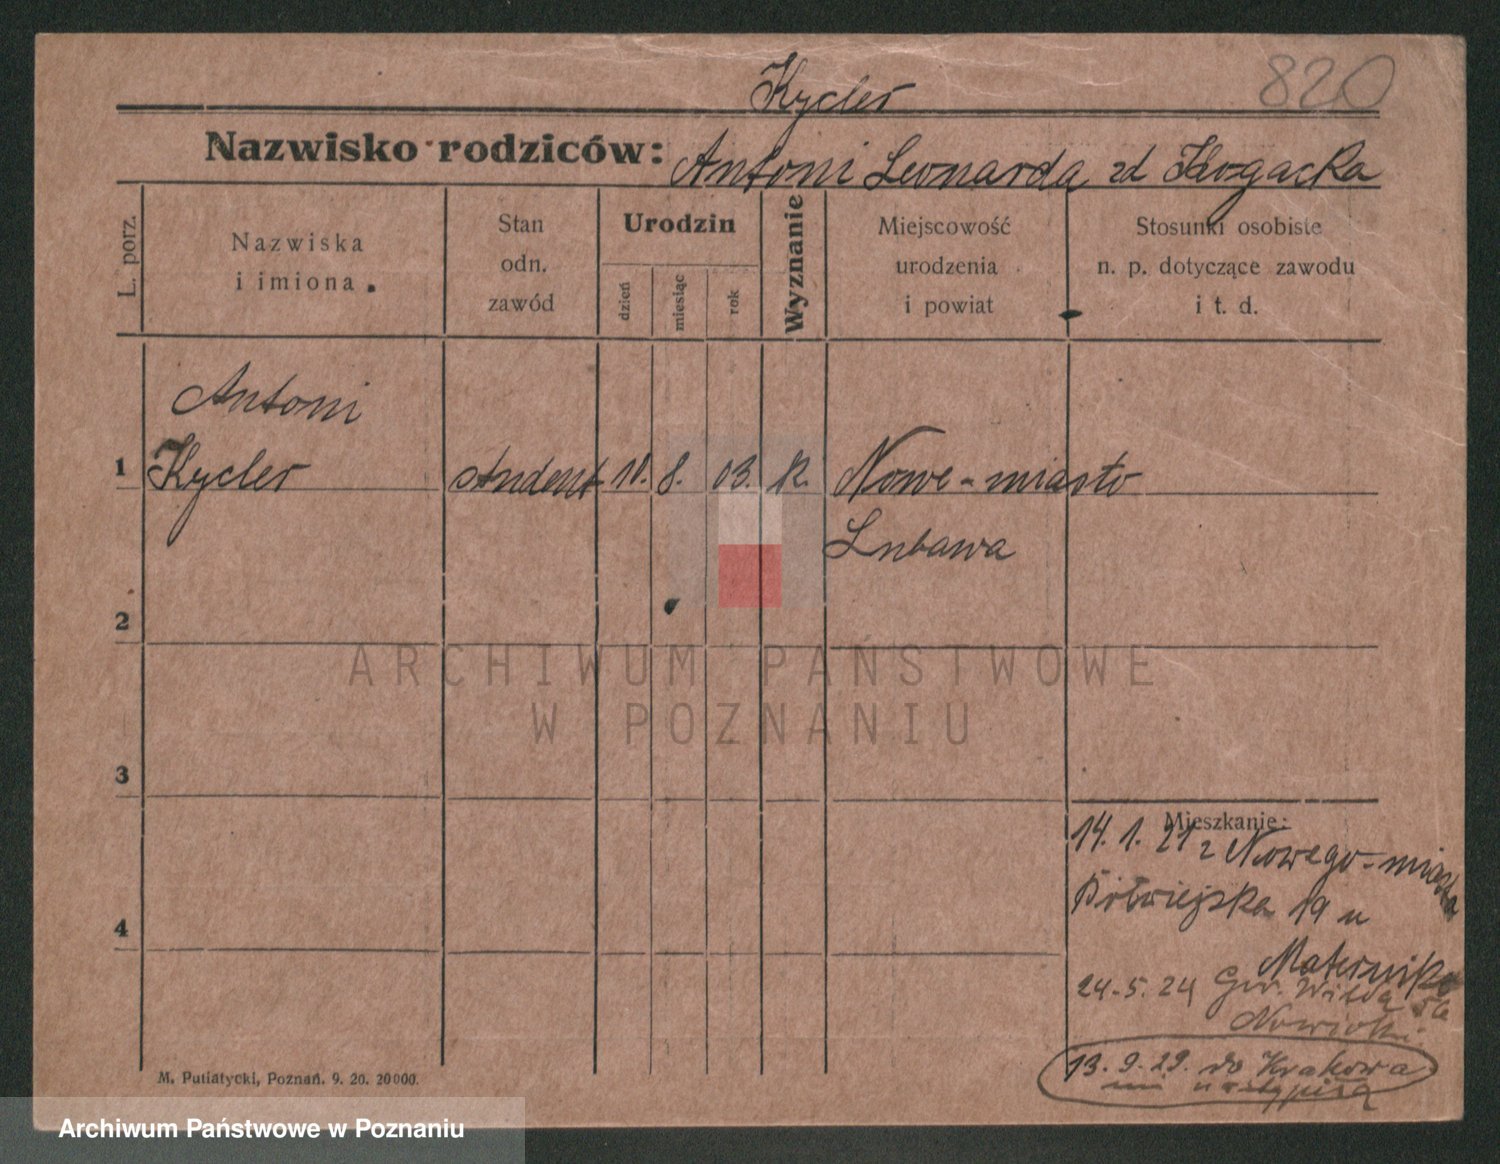 820
Kycler
Nazwisko rodziców: Antoni Leonarda zd
L. porz.
Nazwiska
i imiona
Stan
odn.
zawód
Urodzin
dzień
miesiąc
rok
Wyznanie
Miejscowość
urodzenia
i powiat
Stosunki osobiste
n. p. dotyczące zawodu
i t. d.
Antoni
1 Kycler student 10. 8. 03. k. Nowe-miasto
Lubawa
2
ARCHIWUM PAŃSTWOWE
W POZNANIU
3
Mieszkanie:
14. 1. 21 z Nowego-miasta
Półwiejska 19 u
4
24.5.24 Grn. Wilda
13. 9. 29. do Krakowa
M. Putiatycki, Poznań. 9. 20. 20000.
Archiwum Państwowe w Poznaniu